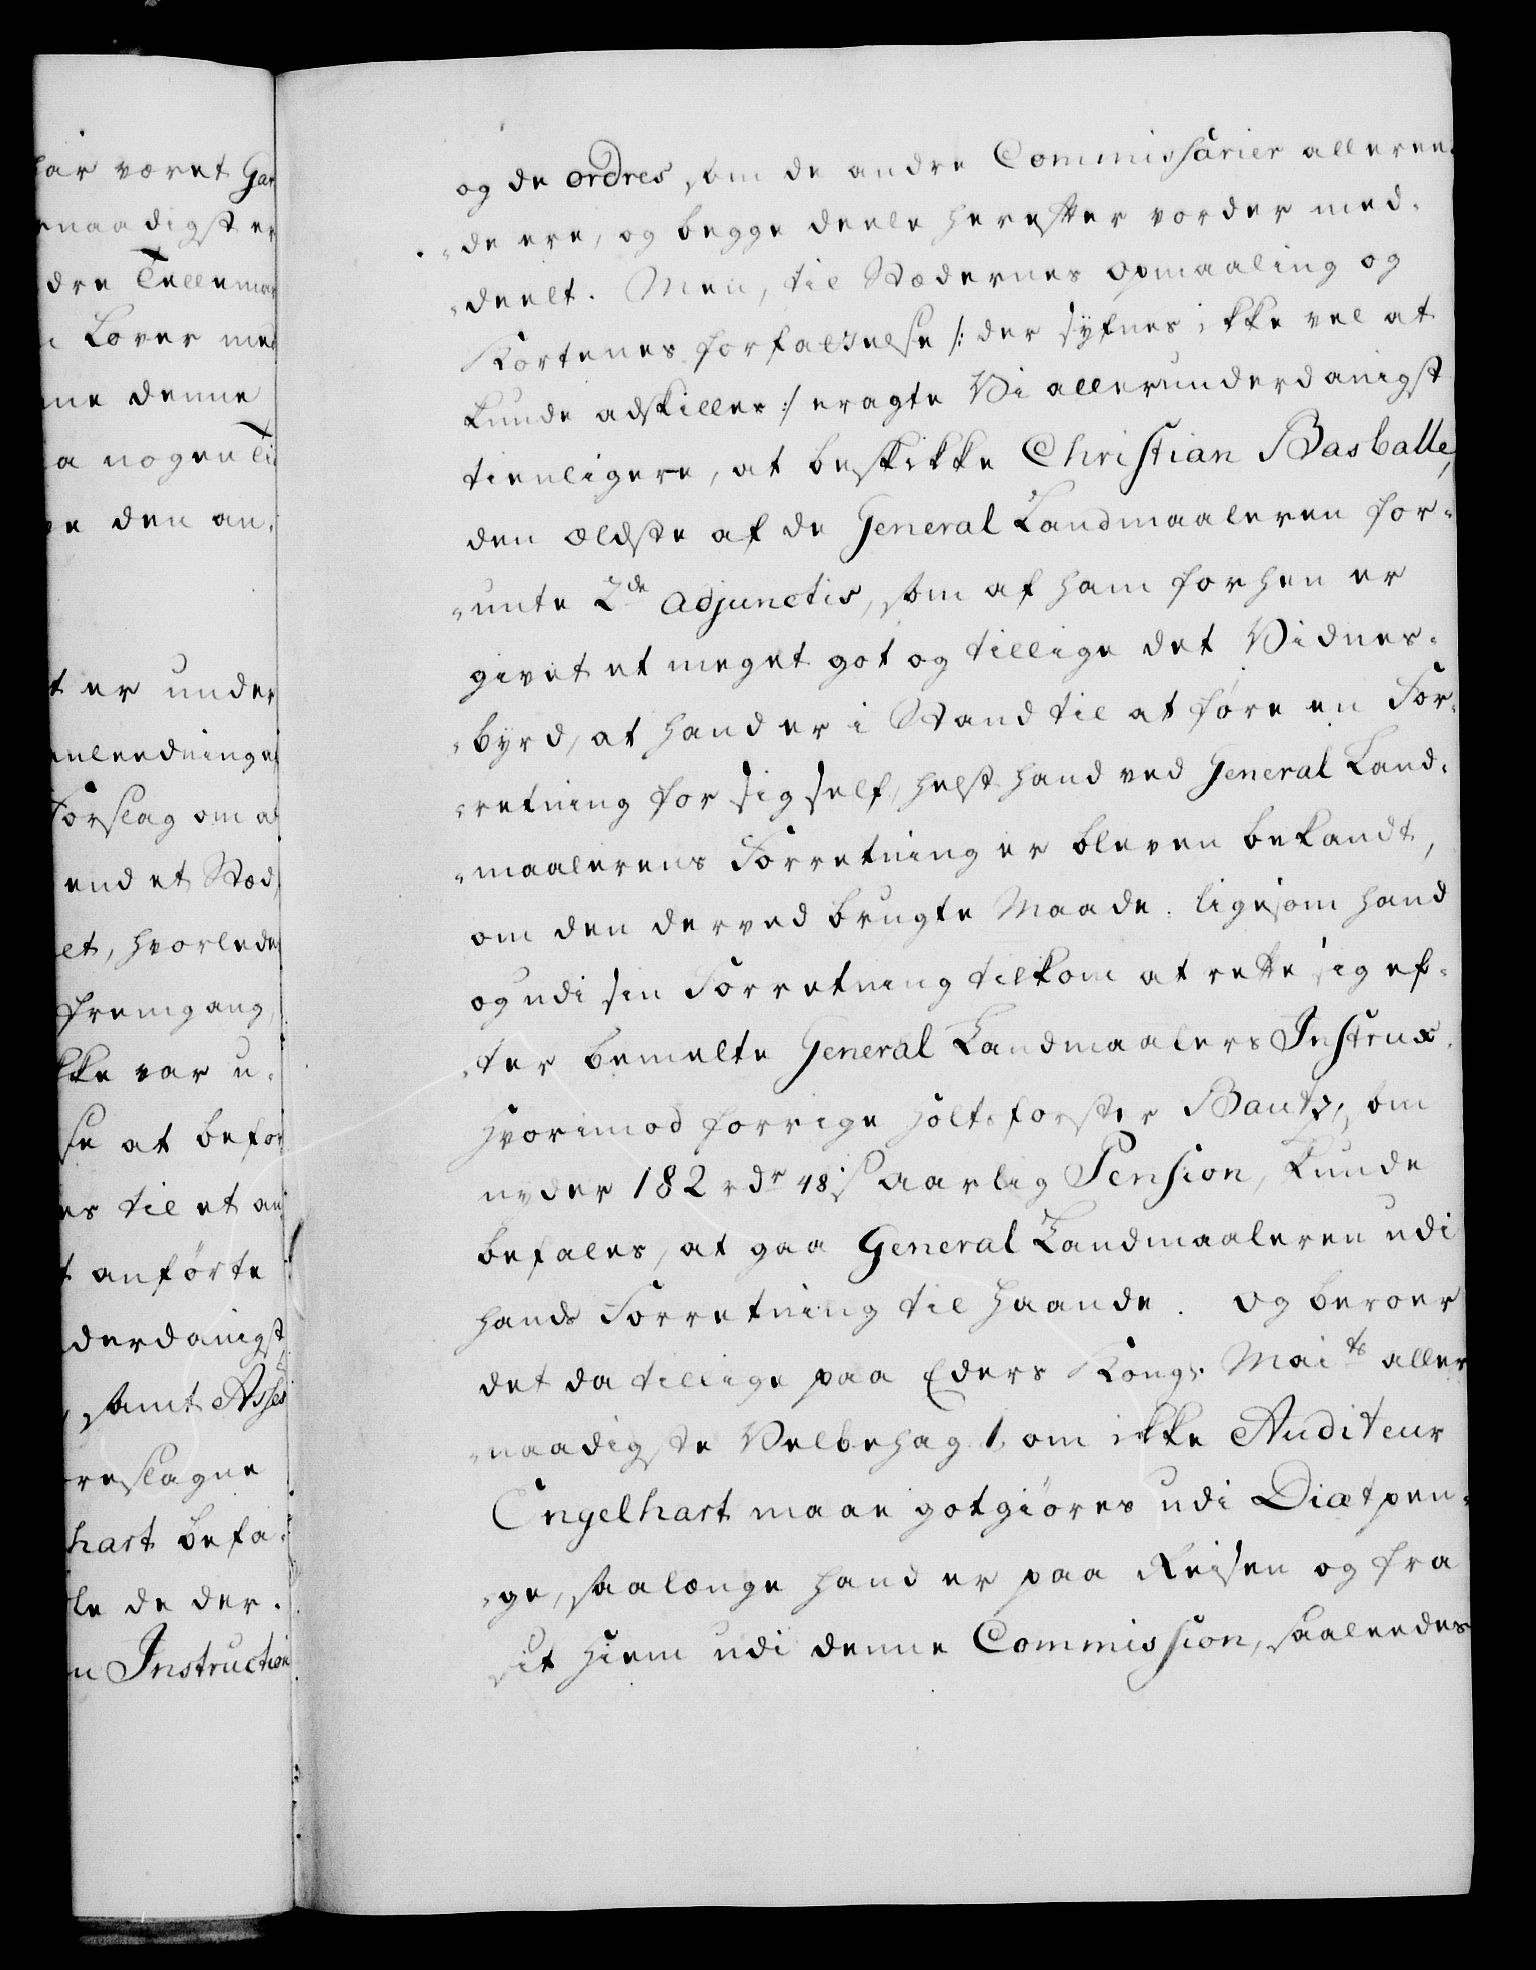 har været Gar
rnaadigst er
dre Tellemar
Lover med
ne denne
a nogen Ti
ve den an-
t er under
anleedninger
Forslag om at
end et Stæd,
et, hvorledes
fremgang,
kke var u-
se at befor
es til et an
t anførte
derdanigst,
samt Asses
reslagne
hart befa-
le de der-
n Instruction
og de ordres, som de andre Commissarier alleree-
-de ere, og begge deele herefter vorder med-
-deelt. Men, til Stædernes opmaaling og
Kortenes forfattelse /: der synes ikke vel at
kunde adskilles :/ eragte Vi allerunderdanigst
tienligere, at beskikke Christian Basballe,
den ældste af de General Landmaaleren for-
-unte 2de Adjunctis, som af ham forhen er
givet et meget got og tillige det Vidnes-
-byrd, at hand er i Stand til at føre en For-
-retning for sig self, helst hand ved General Land-
-maalerens Forretning er bleven bekandt,
om den derved brugte Maade. ligesom hand
og udi sin Forretning tilkom at rette sig ef-
-ter bemelte General Landmaalers Instrux.
Hvorimod forrige Holtzforster Bautz, som
nyder 182 rdr 48 s aarlig Pension, kunde
befales, at gaa General Landmaaleren udi
hands Forretning til Haande. og beroer
det da tillige paa Eders Kongl. Maits aller
-naadigste Velbehag, om ikke Auditeur
Engelhart maae gotgiøres udi Diætpen-
-ge, saalænge hand er paa Reisen og fra
sit Hiem udi denne Commission, saaleedes